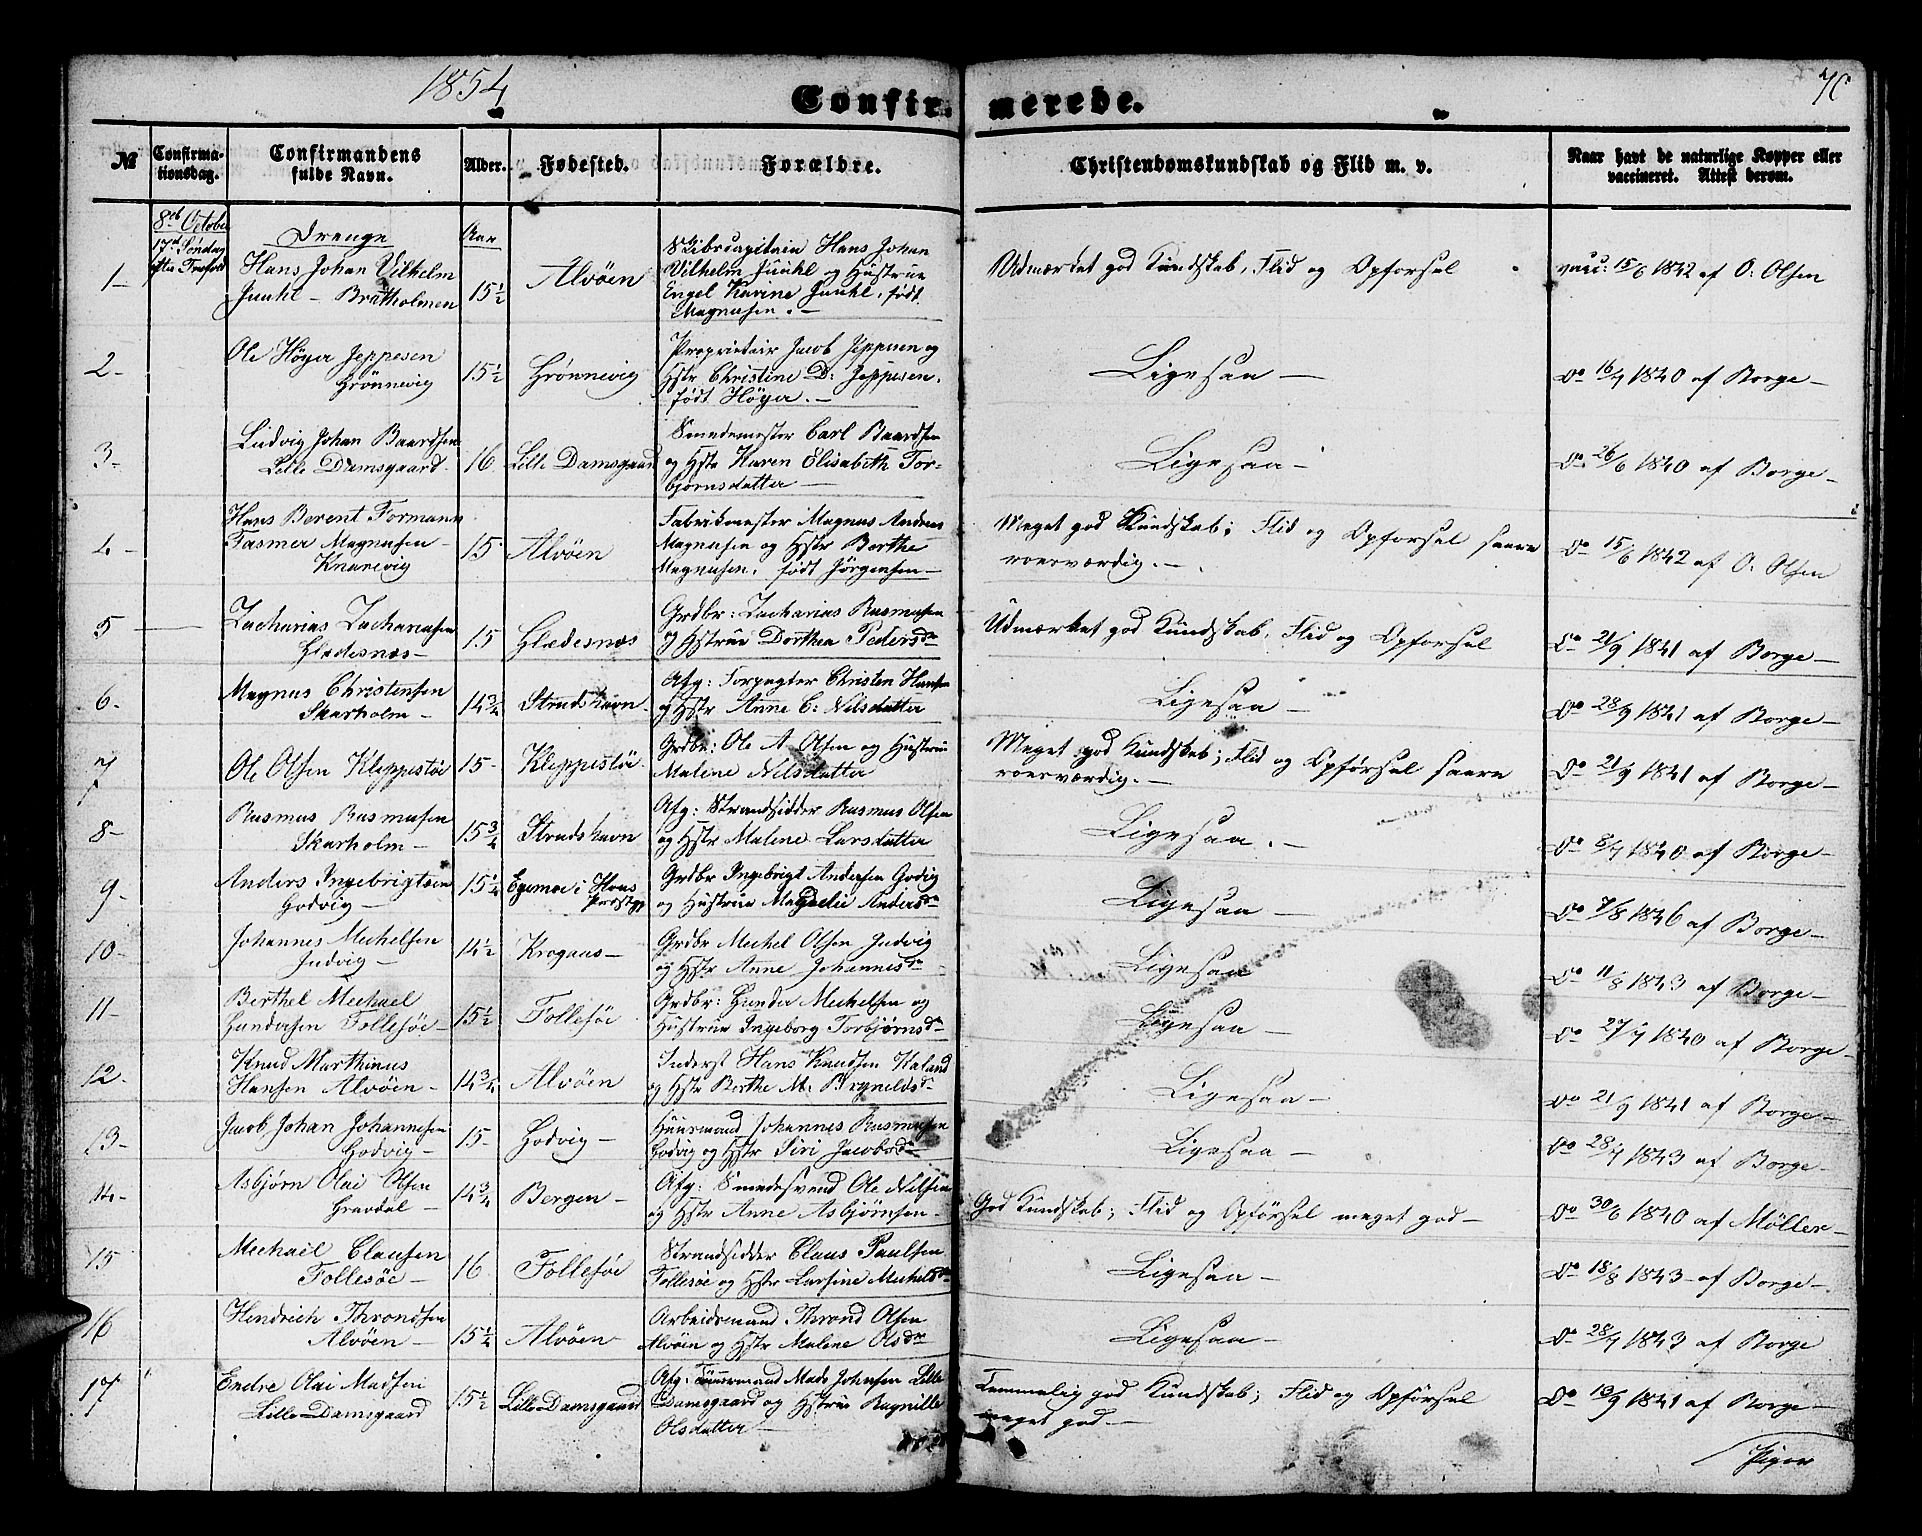 1854
Confir- merede.
70
№
Confirma-
tionsdag.
Confirmandens
fulde Navn.
Alder.
Fødested.
Forældre.
Christendomskundskab og Flid m. v.
Naar havt de naturlige Kopper eller
vaccineret. Attest derom.
8de October
17d Søndag
efter Trefold
Drenge
Aar
1-
Hans Johan Vilhelm
Juuhl - Bratholmen
15½
Alvöen
Skibscapitain Hans Johan
Vilhelm Juuhl og Hustrue
Engel Karine Juuhl, født
Magnusen. -
Udmærket god Kundskab, Flid og Opførsel
vacc: 15/6 1842 af O: Olsen
2-
Ole Höyer Jeppesen
Grönnevig
15½
Grönnevig
Proprietair Jacob Jeppesen og
Hstr Christine D: Jeppesen,
født Höyer. -
Ligesaa -
Do 16/7 1840 af Borge -
3-
Ludvig Johan Baardsen
Lille Damsgaard-
16
Lille Damsgaard
Smedemester Carl Baardsen
og Hstr Karen Elisabeth Tor-
bjørnsdatter -
Ligesaa -
Do 26/6 1840 af Borge -
4-
Hans Berent Formann
Fasmer Magnusen -
Knarevig
15
Alvöen
Fabrikmester Magnus Andreas
Magnusen og Hstr Berthe
Magnusen, født Jörgensen -
Meget god Kundskab; Flid og Opførsel saare
roesværdig. -
Do 15/6 1842 af O: Olsen
5
Zacharias Zachariasen
Gladesnæs -
15
Gladesnæs
Grdbr: Zacharias Rasmusen
og Hstrue Dorthea Pedersdr
Udmærket god Kundskab, Flid og Opførsel
Do 21/9 1841 af Borge -
6-
Magnus Christensen
Skarholm -
14¾
Strudshavn-
Afg: Forpagter Christen Hansen
og Hstr Anne C: Nilsdatter
Ligesaa -
Do 28/9 1841 af Borge -
7
Ole Olsen Kleppestöe
15-
Kleppestöe
Grdbr: Ole A Olsen og Hustrue
Malene Nilsdatter
Meget god Kundskab; Flid og Opførsel saare
roesværdig. -
Do 21/9 1841 af Borge -
8-
Rasmus Rasmusen
Skarholm -
15¾
Strudshavn
Afg: Strandsidder Rasmus Olsen
og Hstr Malene Larsdatter
Ligesaa. -
Do 8/7 1840 af Borge -
9-
Anders Ingebrigtsen
Godvig -
15¼
Egemoe i Hous
Præstgj
Grdbr Ingebrigt Andersen Godvig
og Hustrue Magdeli Andersdr
Ligesaa -
Do 7/8 1846 af Borge -
10-
Johannes Mechelsen
Judvig -
14½
Krogaas -
Grdbr Mechel Olsen Judvig
og Hstr Anne Johannesdr
Ligesaa
Do 11/8 1843 af Borge -
11-
Berthel Mechael
Gundersen Follesöe -
15½
Follesöe
Grdbr: Gunder Mechelsen og
Hustrue Ingeborg Torbjørnsdr
Ligesaa -
Do 27/7 1840 af Borge -
12-
Knud Marthinus
Hansen Alvöen -
14¾
Alvöen
Inderst Hans Knudsen Kaland
og Hstr Berthe M: Brynildsdr
Ligesaa -
Do 21/9 1841 af Borge -
13-
Jacob Johan Johannesen
Godvig -
15-
Godvig -
Huusmand Johannes Rasmusen
Godvig og Hstr Siri Jacobsdr
Ligesaa -
Do 28/7 1843 af Borge -
14-
Asbjørn Olai Olsen
Gravdal -
14¾
Bergen -
Afg: Smedesvend Ole Nilsen
og Hstr Anne Asbjørnsen -
God Kundskab; Flid og Opførsel meget god -
Do 30/6 1840 af Möller -
15
Mechael Clausen
Follesöe -
16
Follesöe
Strandsidder Claus Paulsen
Follesöe og Hstr Larsine Mechelsdr
Ligesaa -
Do 18/8 1843 af Borge -
16
Hendrich Throndsen
Alvöen -
15½
Alvöen
Arbeidsmand Thrond Olsen
Alvöen og Hstr Malene Olsdr
Ligesaa -
Do 28/7 1843 af Borge
17
Endre Olai Madsen
Lille Damsgaard
15½
Lille Damsgaard
Afg: Mads Johnsen Lille
Damsgaard og Hstrue Ragnille
Olsdatter -
Temmelig god Kundskab; Flid og Opførsel
meget god -
Do 13/9 1841 af Borge -
Piger